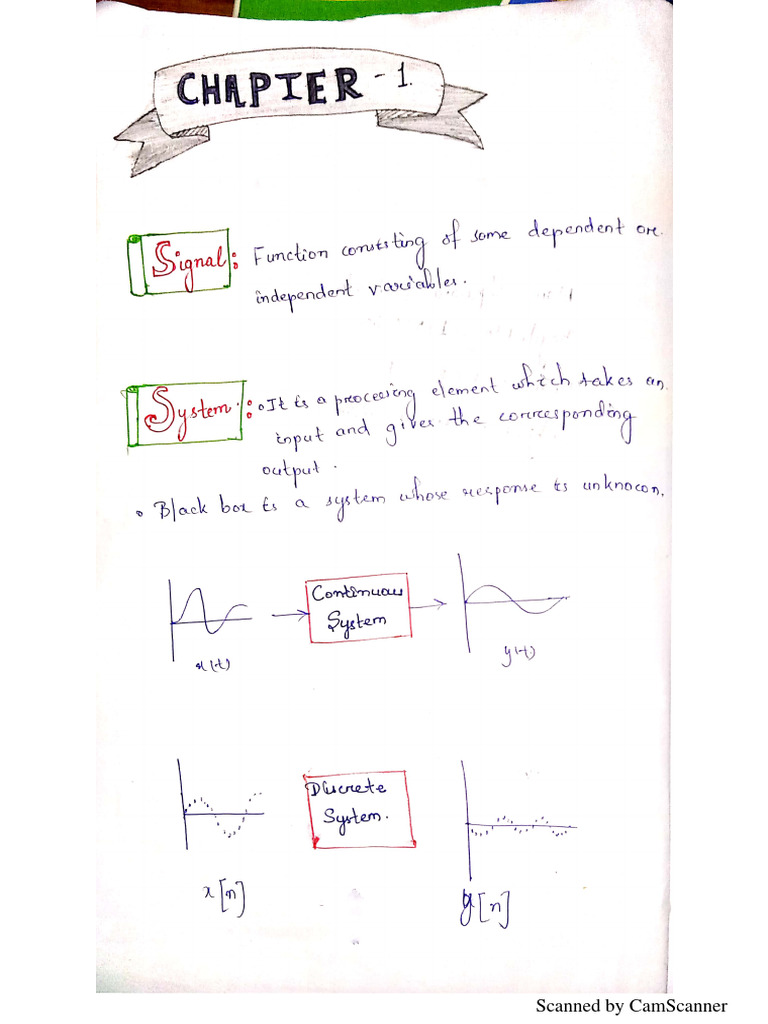 CHAPTER - 1.
Signal : Function consisting of some dependent or
independent variables.
System : • It is a proceesing element which takes an
input and gives the corresponding
output.
• Black box is a system whose response is unknown.
Continuous
System
x(t)
y(t)
Discrete
System.
x[n]
y[n]
Scanned by CamScanner